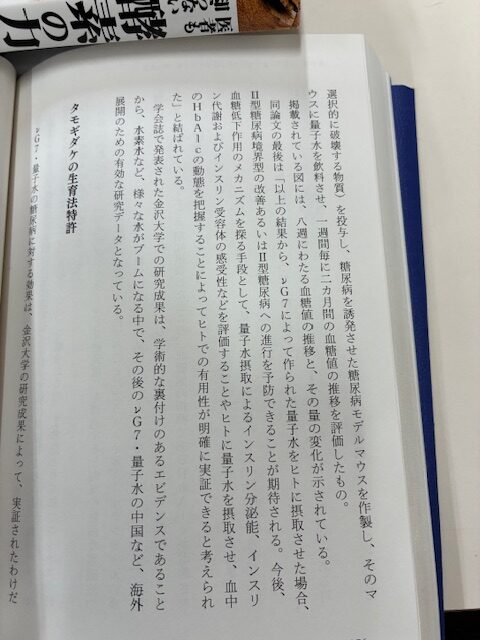 医者も
知らない
酵素の力
選択的に破壊する物質）を投与し、糖尿病を誘発させた糖尿病モデルマウスを作製し、そのマ
ウスに量子水を飲料させ、一週間毎に二カ月間の血糖値の推移を評価したもの。
掲載されている図には、八週にわたる血糖値の推移と、その量の変化が示されている。
同論文の最後は「以上の結果から、νG7によって作られた量子水をヒトに摂取させた場合、
Ⅱ型糖尿病境界型の改善あるいはⅡ型糖尿病への進行を予防できることが期待される。今後、
血糖低下作用のメカニズムを探る手段として、量子水摂取によるインスリン分泌能、インスリ
ン代謝およびインスリン受容体の感受性などを評価することやヒトに量子水を摂取させ、血中
のHbA1cの動態を把握することによってヒトでの有用性が明確に実証できると考えられ
た」と結ばれている。
学会誌で発表された金沢大学での研究成果は、学術的な裏付けのあるエビデンスであること
から、水素水など、様々な水がブームになる中で、その後のνG7・量子水の中国など、海外
展開のための有効な研究データとなっている。
タモギダケの生育法特許
νG7・量子水の糖尿病に対する効果は、金沢大学の研究成果によって、実証されたわけだ